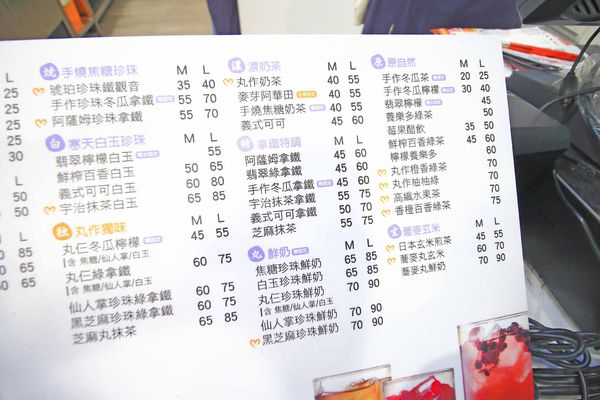 L
25
25
25
25
30
50
50
燒 手燒焦糖珍珠 M L
琥珀珍珠鐵觀音 35 40
手作珍珠冬瓜拿鐵 55 70
阿薩姆珍珠拿鐵 55 70
白 寒天白玉珍珠 M L
翡翠檸檬白玉 55
鮮榨百香白玉 50 65
義式可可白玉 60 80
宇治抹茶白玉 65 85
獨 丸作獨味 M L
丸仁冬瓜檸檬 45 55
含 焦糖/仙人掌/白玉
丸仁綠拿鐵 60 75
含 焦糖/仙人掌/白玉
仙人掌珍珠綠拿鐵 60 75
黑芝麻珍珠綠拿鐵 60 75
芝麻丸抹茶 65 85
濃 濃奶茶 M L
丸作奶茶 40 55
麥芽阿華田 40 55
手燒焦糖奶茶 40 55
義式可可 45 60
特 拿鐵特調 M L
阿薩姆拿鐵 45 60
翡翠綠拿鐵 45 60
手作冬瓜拿鐵 45 60
宇治抹茶拿鐵 55 75
義式可可拿鐵 50 70
芝麻抹茶 55 75
丸 鮮奶 M L
焦糖珍珠鮮奶 65 85
白玉珍珠鮮奶 65 85
丸仁珍珠鮮奶 70 90
含 焦糖/仙人掌/白玉
仙人掌珍珠鮮奶 70 90
黑芝麻珍珠鮮奶 70 90
原 原自然 M L
手作冬瓜茶 20 25
手作冬瓜檸檬 30 40
翡翠檸檬 45
養樂多綠茶 50
莓果醋飲 35 50
鮮榨百香綠茶 45 60
檸檬養樂多
丸作橙香綠茶 70
丸作柚柚綠 70
高纖水果茶 70
香橙百香綠茶 75
蕎麥玄米 M L
日本玄米煎茶 45 55
蕎麥丸玄米 60 70
蕎麥丸鮮奶 70 90